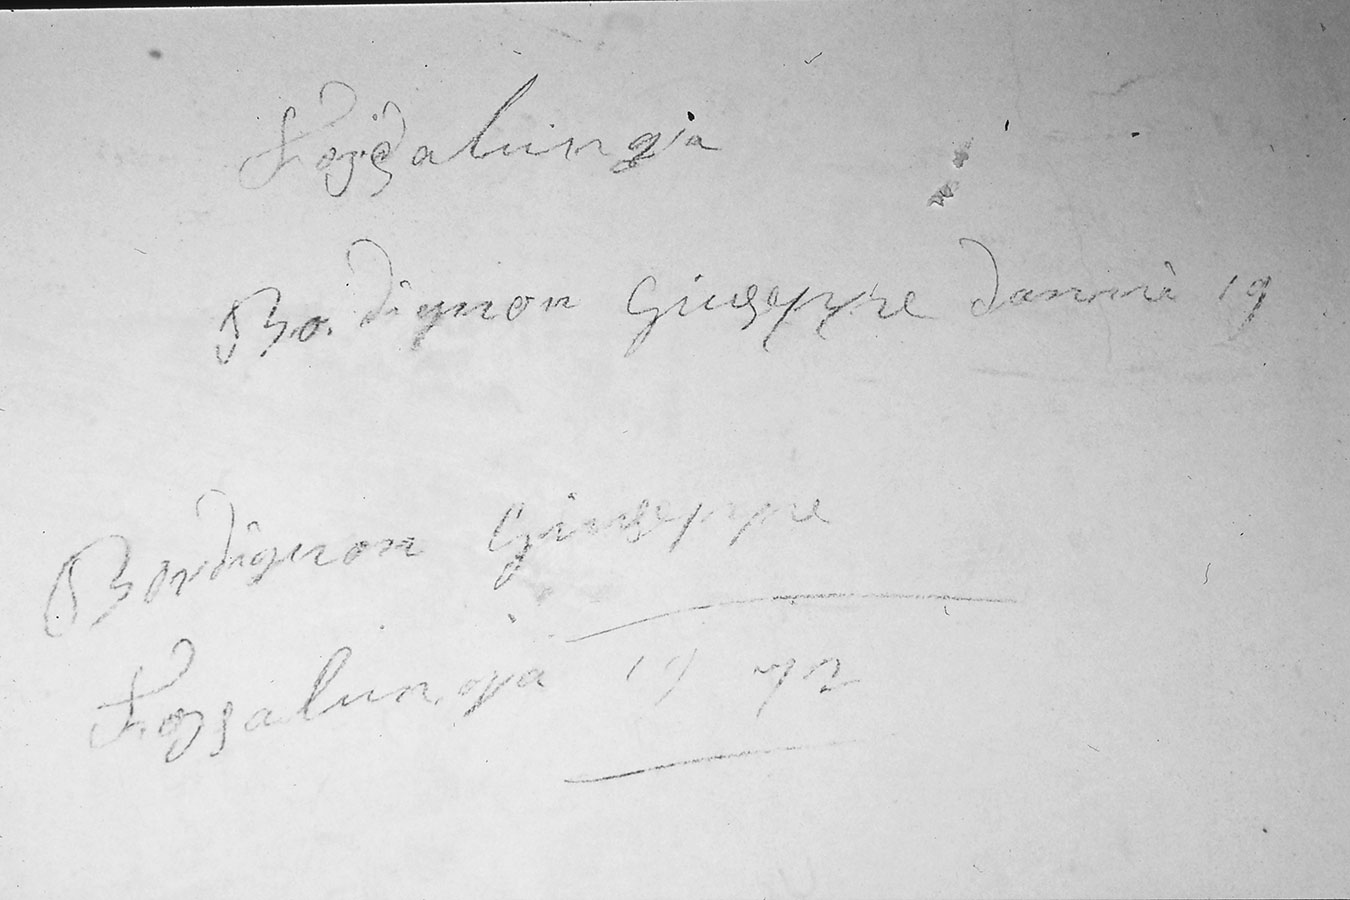 Fozzalunga
Bordignon Giuseppe danni 19
Bordignon Giuseppe
Fozzalunga 19 42